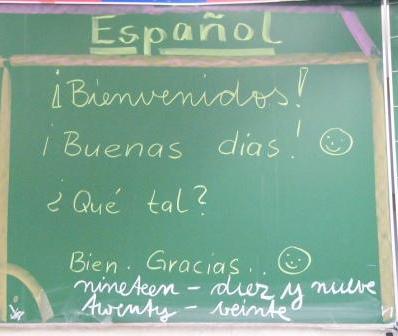 Español
¡Bienvenidos!
¡Buenas días!
¿Qué tal?
Bien. Gracias..
nineteen - diez y nueve
twenty - veinte